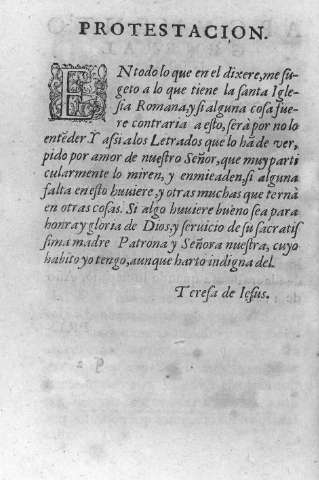 PROTESTACION.
EN todo lo que en el dixere, me su-
geto a lo que tiene la santa Igle-
sia Romana, y si alguna cosa fue-
re contraria a esto, serà por no lo
entẽder. Y assi a los Letrados que lo hã de ver,
pido por amor de nuestro Señor, que muy parti
cularmente lo miren, y enmieaden, si alguna
falta en esto huuiere, y otras muchas que ternà
en otras cosas. Si algo huuiere bueno sea para
honra y gloria de Dios, y seruicio de su sacratis
sima madre Patrona y Señora nuestra, cuyo
habito yo tengo, aunque harto indigna del.
Teresa de Iesus.